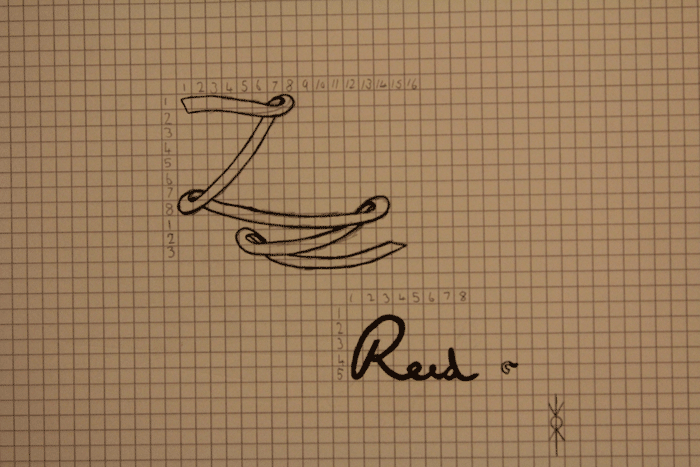 1 2 3 4 5 6 7 8 9 10 11 12 13 14 15 16
1
2
3
4
5
6
7
8
1
2
3
Z
1 2 3 4 5 6 7 8
1
2
3
4
5
Reed